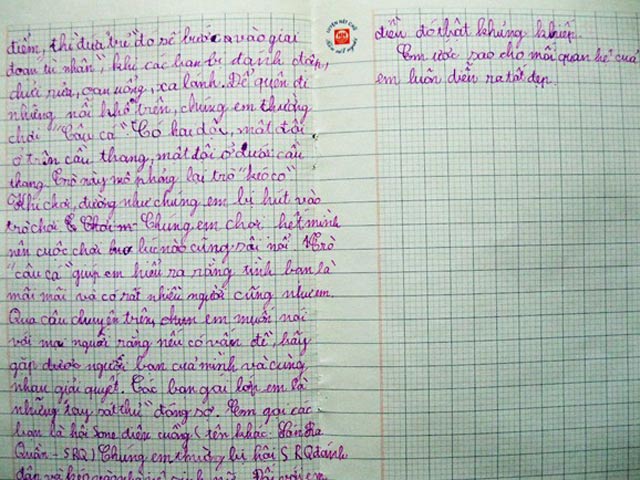 điểm, thì đứa trẻ đó sẽ bước vào giai
đoạn "tù nhân", khi các bạn bị đánh đập,
chửi rủa, oan uổng, xa lánh. Để quên đi
những nỗi khổ trên, chúng em thường
chơi "Câu cá". Có hai đội, một đội
ở trên cầu thang, một đội ở dưới cầu
thang. Trò này mô phỏng lại trò "kéo co"
Khi chơi, dường như chúng em bị hút vào
trò chơi. Chúng em chơi hết mình
nên cuộc chơi lúc nào cũng sôi nổi. Trò
"câu cá" giúp em hiểu ra rằng tình bạn là
mãi mãi và có rất nhiều người cũng như em.
Qua câu chuyện trên, em muốn nói
với mọi người rằng nếu có vấn đề, hãy
gặp được người bạn của mình và cùng
nhau giải quyết. Các bạn gái lớp em là
những "tay sát thủ" đáng sợ. Em gọi các
bạn là hội Sone điên cuồng (tên khác:
Quân - SRQ) Chúng em thường bị hội SRQ đánh
đập và
diễn đó thật khủng khiếp.
Em ước sao cho mối quan hệ của
em luôn diễn ra tốt đẹp.
LUYỆN NÉT CHỮ